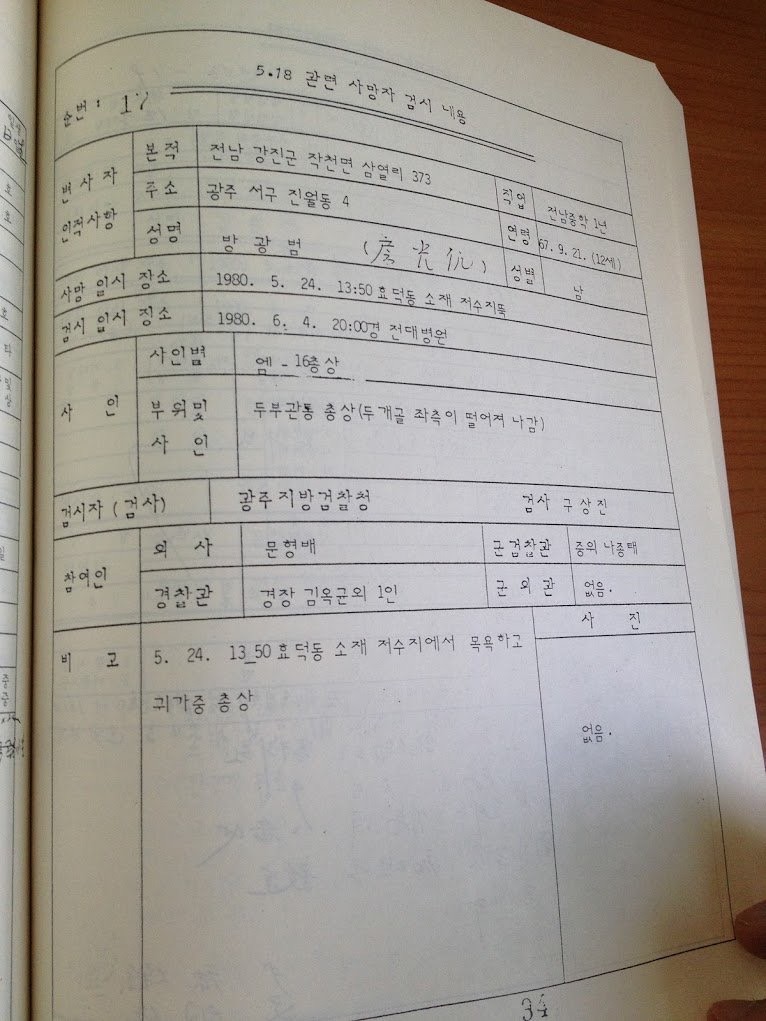 5.18 관련 사망자 검시 내용
순번 : 17
변사자 인적사항
본적 전남 강진군 작천면 삼열리 373
주소 광주 서구 진월동 4
직업 전남중학 1년
성명 방 광 범
연령 67. 9. 21. (12세)
성별 남
사망 일시 장소 1980. 5. 24. 13:50 효덕동 소재 저수지뚝
검시 일시 장소 1980. 6. 4. 20:00경 전대병원
사 인
사인별 엠 - 16총상
부위및 사 인 두부관통 총상(두개골 좌측이 떨어져 나감)
검시자 (검사) 광주지방검찰청 검사 구상진
참여인
의 사 문형배 군검찰관 중위 나종태
경찰관 경장 김옥균외 1인 군 의 관 없음.
비 고 5. 24. 13_50 효덕동 소재 저수지에서 목욕하고
귀가중 총상
사 진
없음.
34